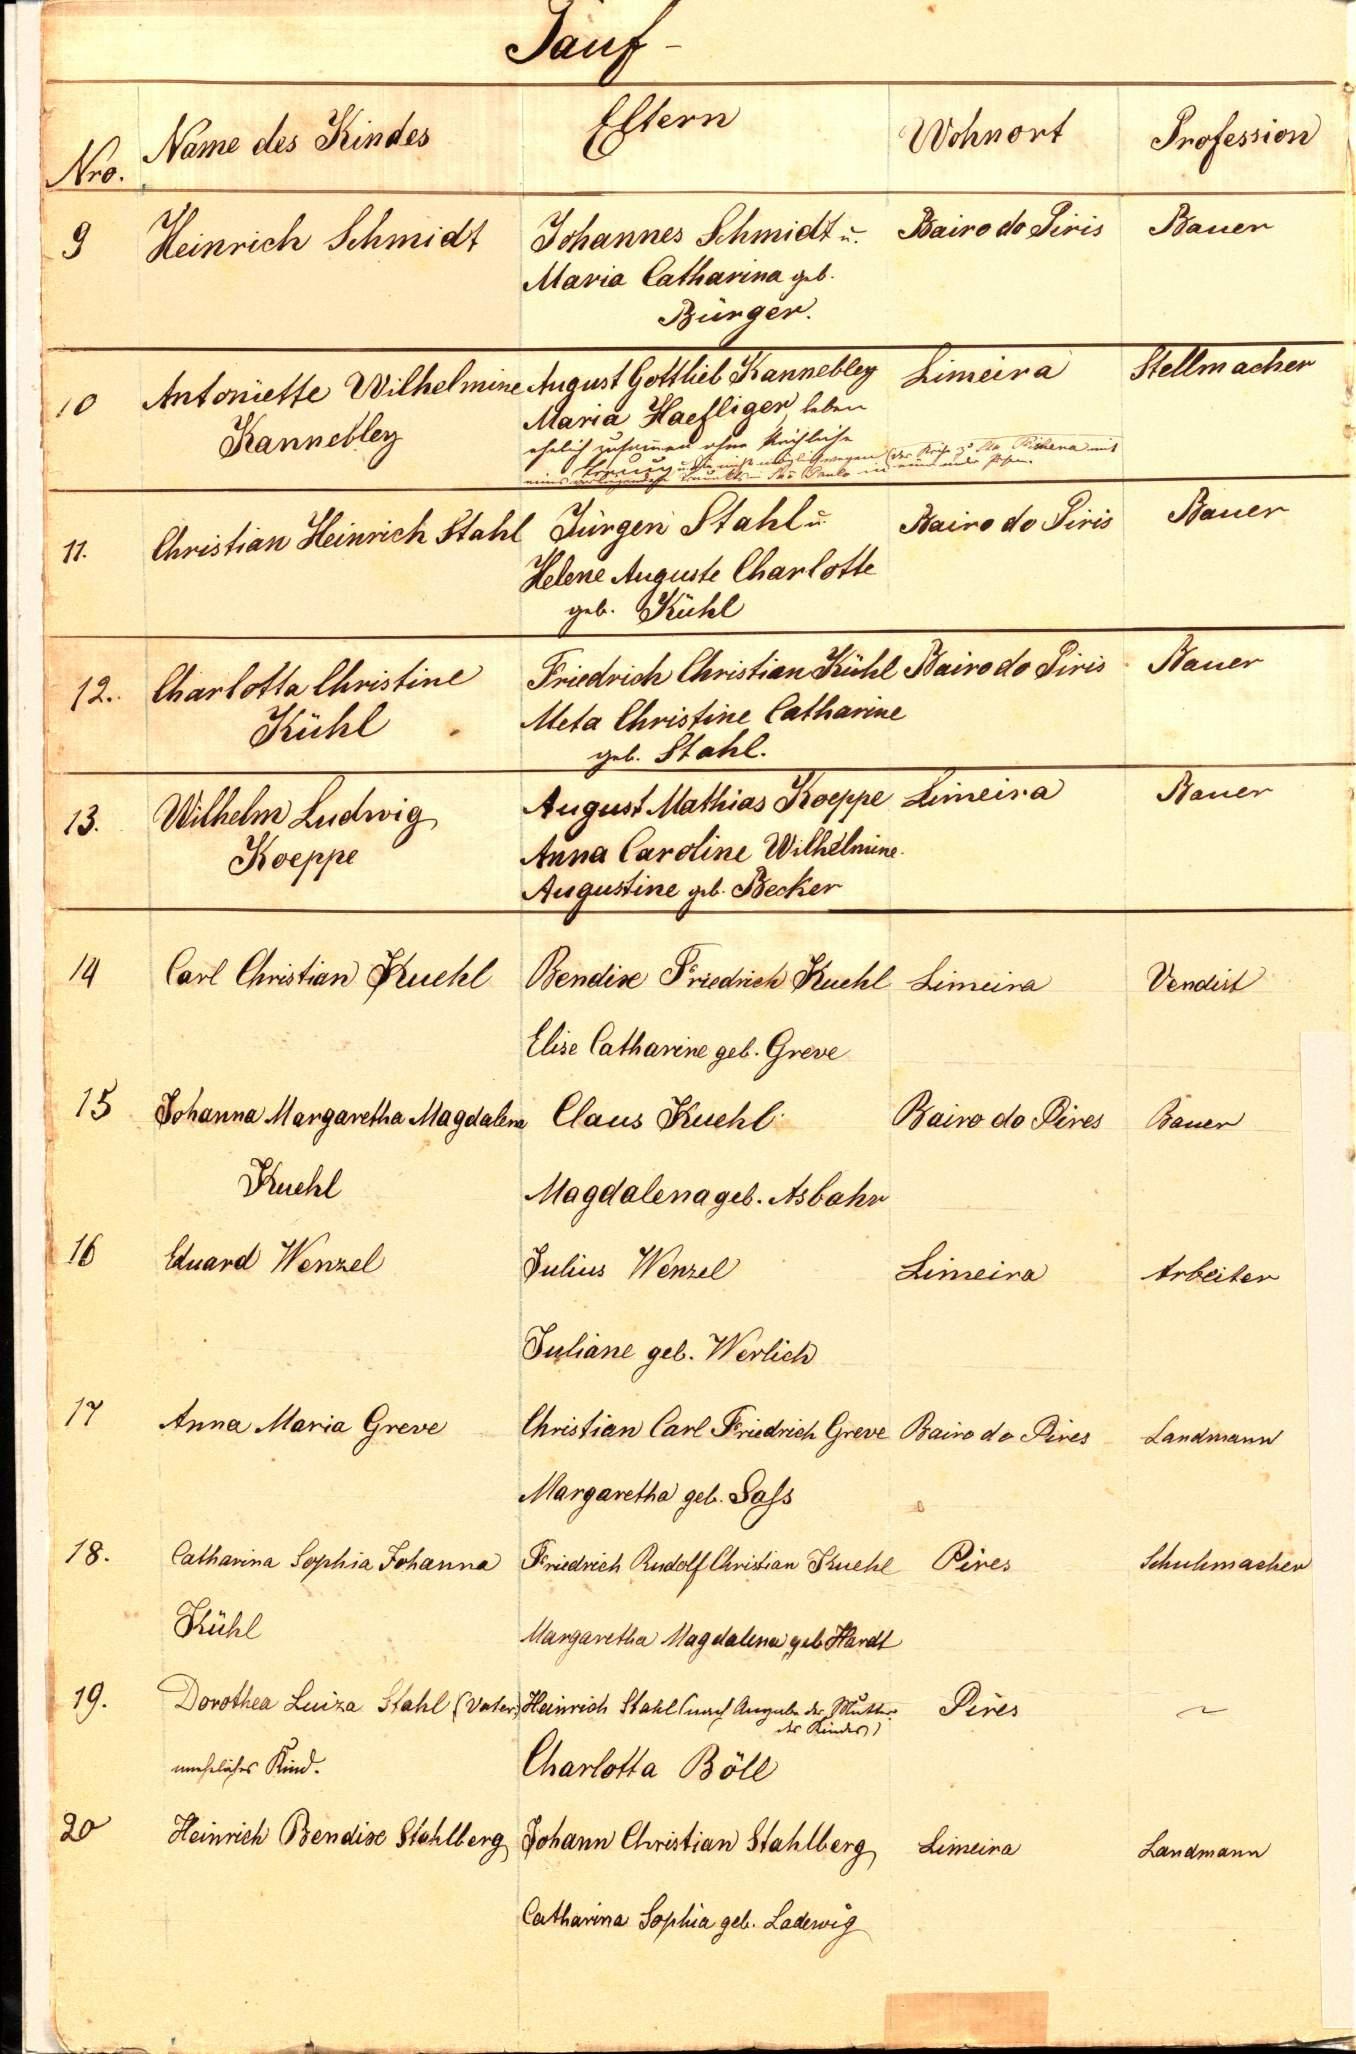 Tauf-
Nro. Name des Kindes Eltern Wohnort Profession
9 Heinrich Schmidt Johannes Schmidt u. Bairo do Piris Bauer
Maria Catharina geb.
Bürger.
10 Antoniette Wilhelmine August Gottlieb Kannebley Limeira Stellmacher
Kannebley Maria Haefliger, leben
ehelich zusamen ohne kirchliche
Trauung
11. Christian Heinrich Stahl Jürgen Stahl u. Bairo do Piris Bauer
Helene Auguste Charlotte
geb. Kühl
12. Charlotta Christine Friedrich Christian Kühl Bairo do Piris Bauer
Kühl Meta Christine Catharine
geb. Stahl.
13. Wilhelm Ludwig August Mathias Koeppe Limeira Bauer
Koeppe Anna Caroline Wilhelmine
Augustine geb. Becker
14 Carl Christian Kuehl Bendix Friedrich Kuehl Limeira Vendist
Elise Catharine geb. Greve
15 Johanna Margaretha Magdalena Claus Kuehl Bairo do Pires Bauer
Kuehl Magdalena geb. Asbahr
16 Eduard Wenzel Julius Wenzel Limeira Arbeiter
Juliane geb. Werlich
17 Anna Maria Greve Christian Carl Friedrich Greve Bairo do Pires Landmann
Margaretha geb. Saſs
18. Catharina Sophia Johanna Friedrich Rudolf Christian Kuehl Pires Schuhmacher
Kühl Margaretha Magdalena, geb Hardt
19. Dorothea Luiza Stahl (Vater:) Heinrich Stahl (nach Angabe der Mutter Pires ~
des Kindes)
unehliches Kind. Charlotta Böll
20 Heinrich Bendix Stahlberg Johann Christian Stahlberg Limeira Landmann
Catharina Sophia geb. Ladewig